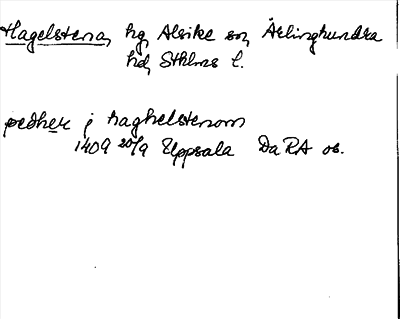 Hagelstena, hg, Alsike sn, Ärlinghundra
hd, Sthlms l.
pedher j haghelstenom
1409 20/9 Uppsala DaRA os.